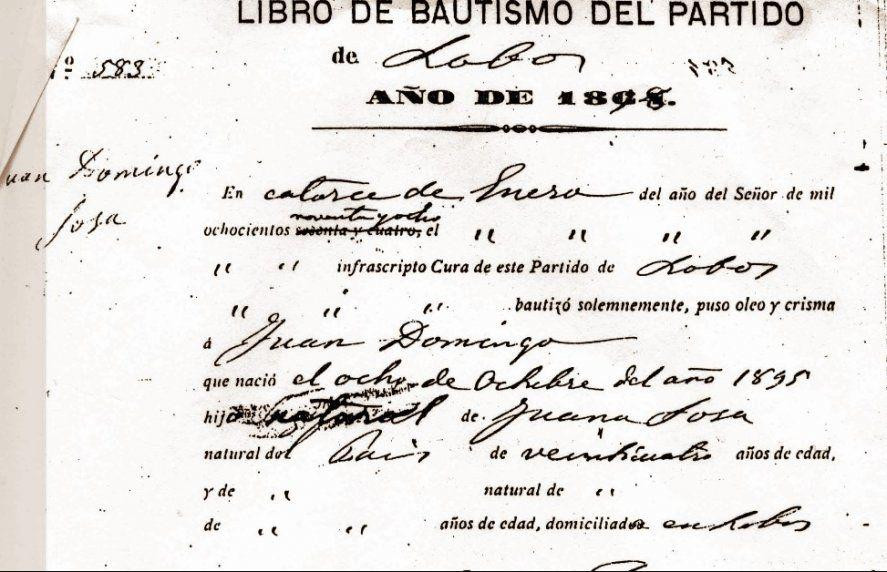 LIBRO DE BAUTISMO DEL PARTIDO
Nº 583 de Lobos
AÑO DE 1898.
Juan Domingo
Sosa
En catorce de Enero del año del Señor de mil
noventa y ocho
ochocientos sesenta y cuatro, el " " " "
" " infrascripto Cura de este Partido de Lobos
" " " bautizó solemnemente, puso oleo y crisma
á Juan Domingo
que nació el ocho de Octubre del año 1895
hijo natural de Juana Sosa
natural del Pais de veinticuatro años de edad,
y de " natural de "
de " " años de edad, domiciliados en Lobos